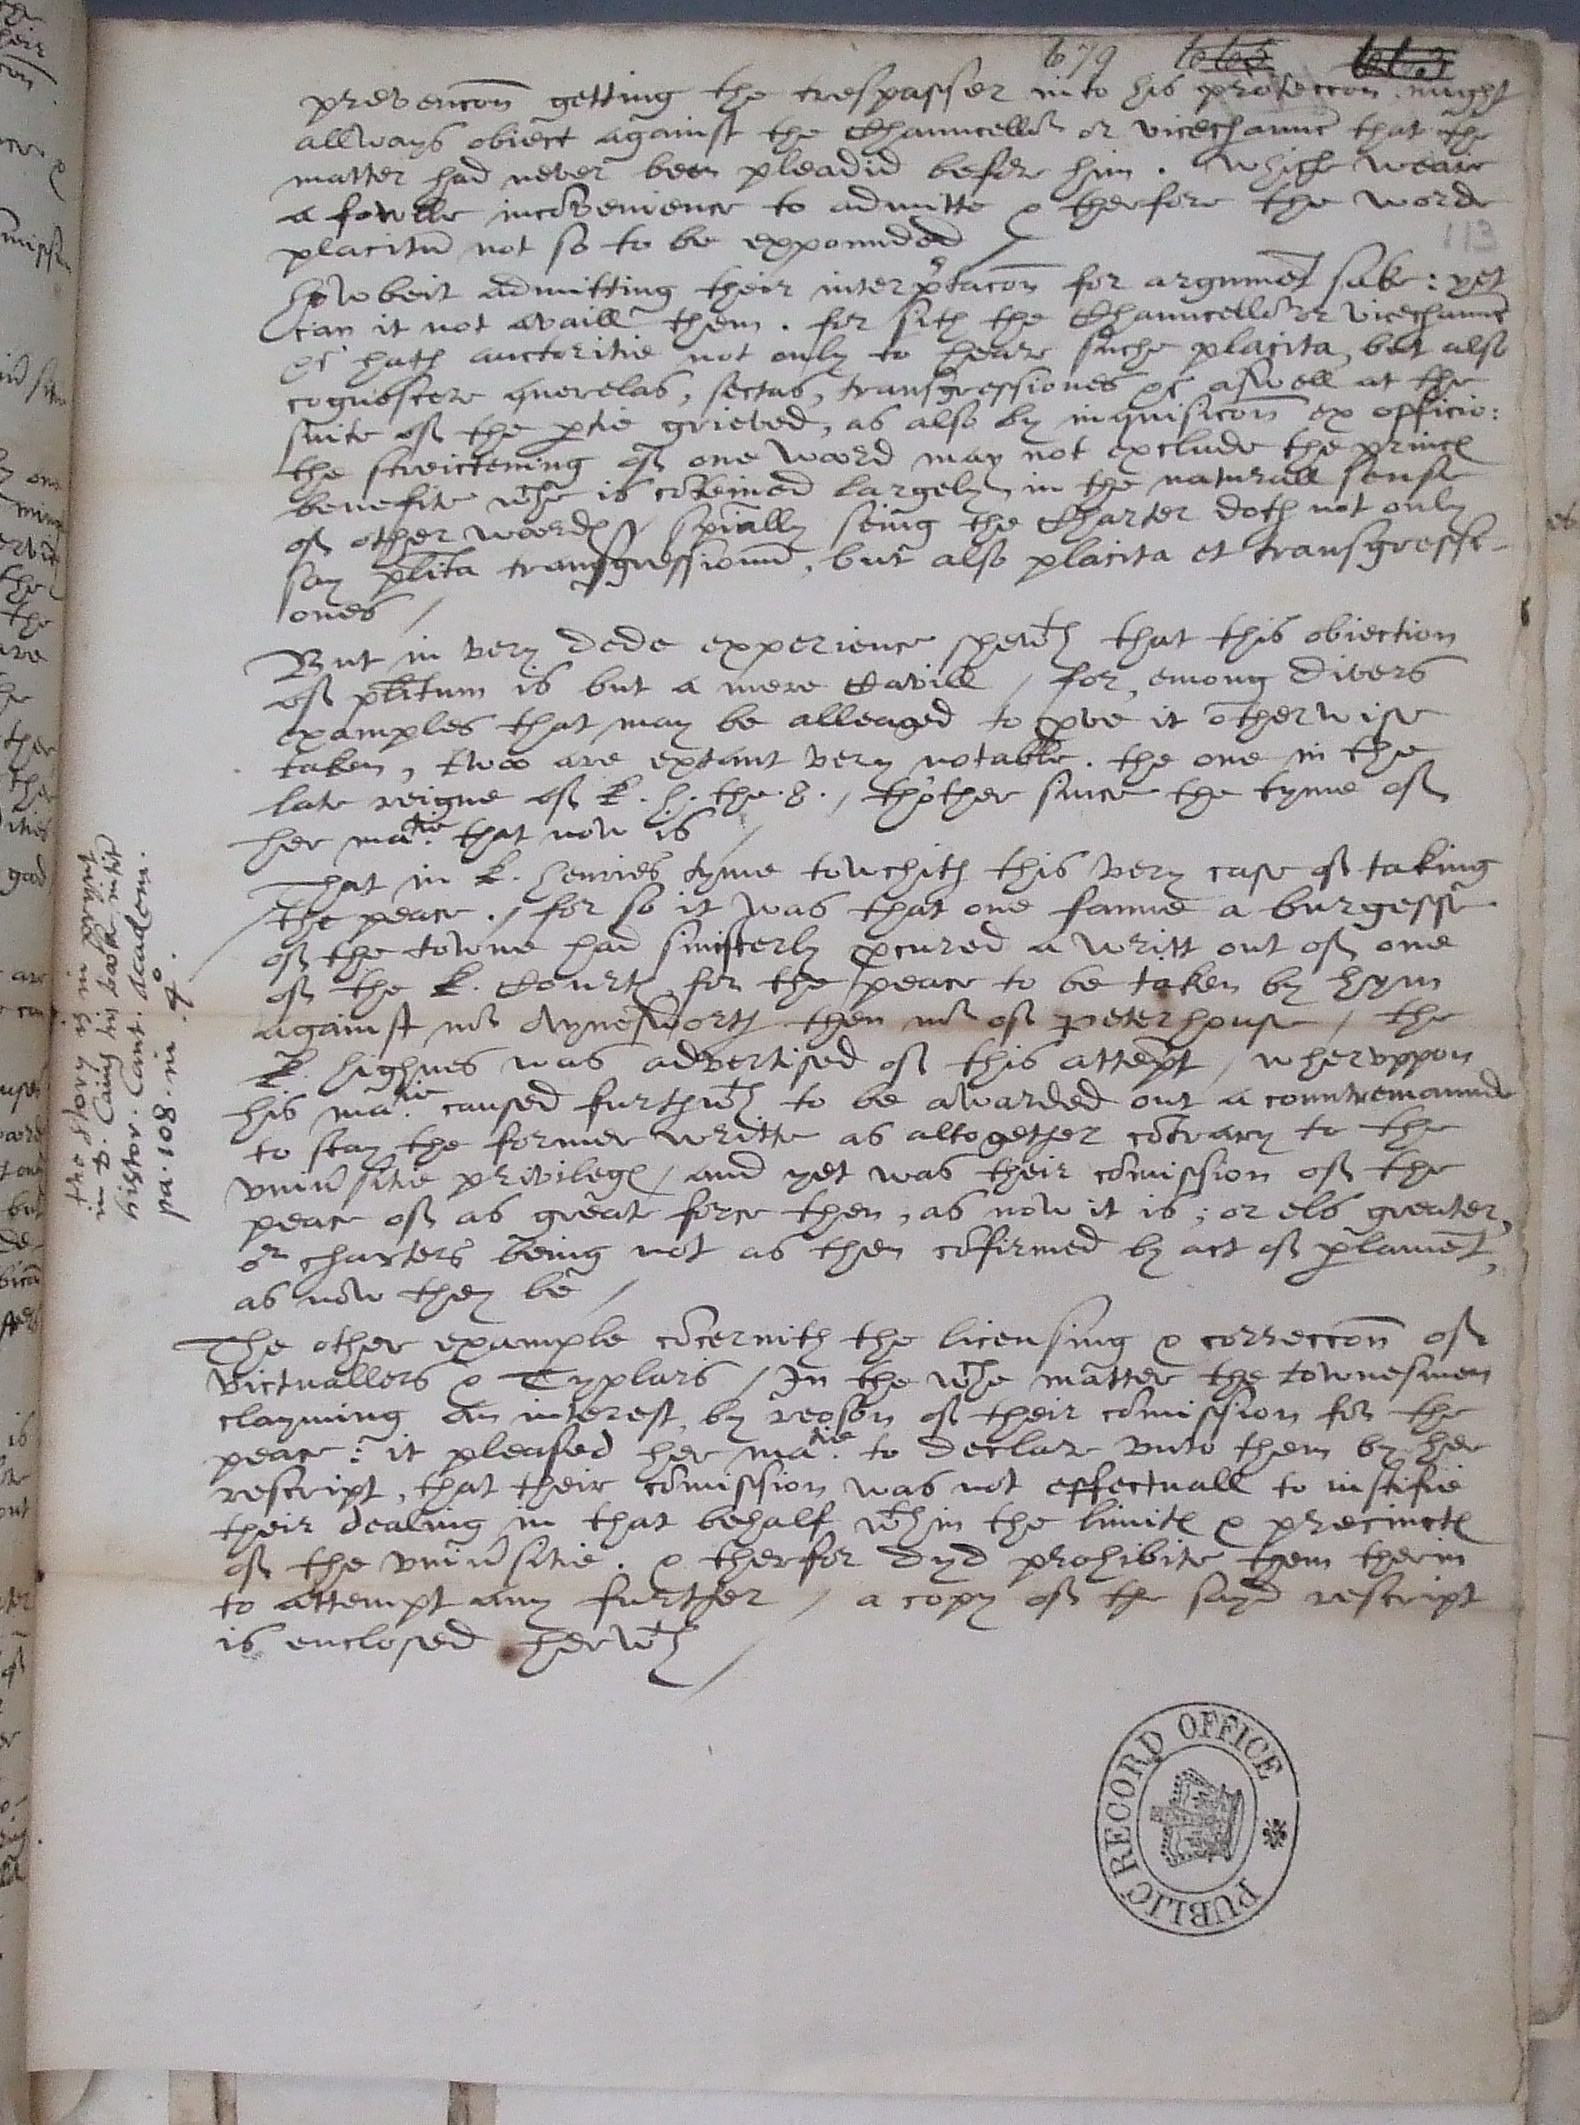 679 665 663
113
prevencon getting the trespasser into his proteccon might
allways obiect against the Chauncellor or vicechaunc that the
matter had never been pleadid before him . which weare
a fowlle inconvenience to admitte & therfore the worde
placitu not so to be expounded /
Howbeit admitting their interptacon for argumet sake : yet
can it not availl them . for sith the Chauncellor or vicechaunc
&c hath auctoritie not only to heare suche placita, but also
cognoscere querelas, sectas, transgressiones &c aswell at the
suite of the ptie grieved, as also by inquisicon ex officio :
the streictening of one woord may not exclude the princes
benefite wche is coteined largely in the naturall sense
of other woordes / spially seing the Charter doth not only
say plita transgressionu, but also placita et transgressi-
ones /
But in very dede experience sheweth that this obiection
of plitum is but a mere Cavill / for, emong divers
examples that may be alleaged to pve it otherwise
taken, twoo are extant very notable . the one in the
late reigne of k . h . the . 8 . / thother since the tyme of
her matie that now is /
That in k . Henries tyme towchith this very case of taking
the peace . / for so it was that one fanne a burgesse
of the towne had sinisterly pcured a writt out of one
of the k . Courtes for the peace to be taken by hym
against mr Aynesworth then mr of Peterhouse / the
k . highnes was advertised of this attept / wheruppon
his matie caused furthwth to be awarded out a countremaunde
to stay the former writte as altogether cotrary to the
vniuersitie privileges / and yet was their comission of the
peace of as great force then, as now it is ; or els greater,
or charters being not as then cofirmed by act of plamet,
as now they be /
The other example cocernith the licensing & correccon of
victuallers & Typlars / In the wche matter the townesmen
clayming an interest by reason of their comission for the
peace : it pleased her matie to declare vnto them by her
rescript, that their comission was not effectuall to iustifie
their dealing in that behalf wthin the limites & precinctes
of the vniuersitie . & therfor dyd prohibite them therin
to attempt any further / a copy of the sayd rescript
is enclosed herwth /
the story is in print
in D. Caius his book intit
histor. Cant. Academ.
pa. 108. in . 4o.
PUBLIC RECORD OFFICE